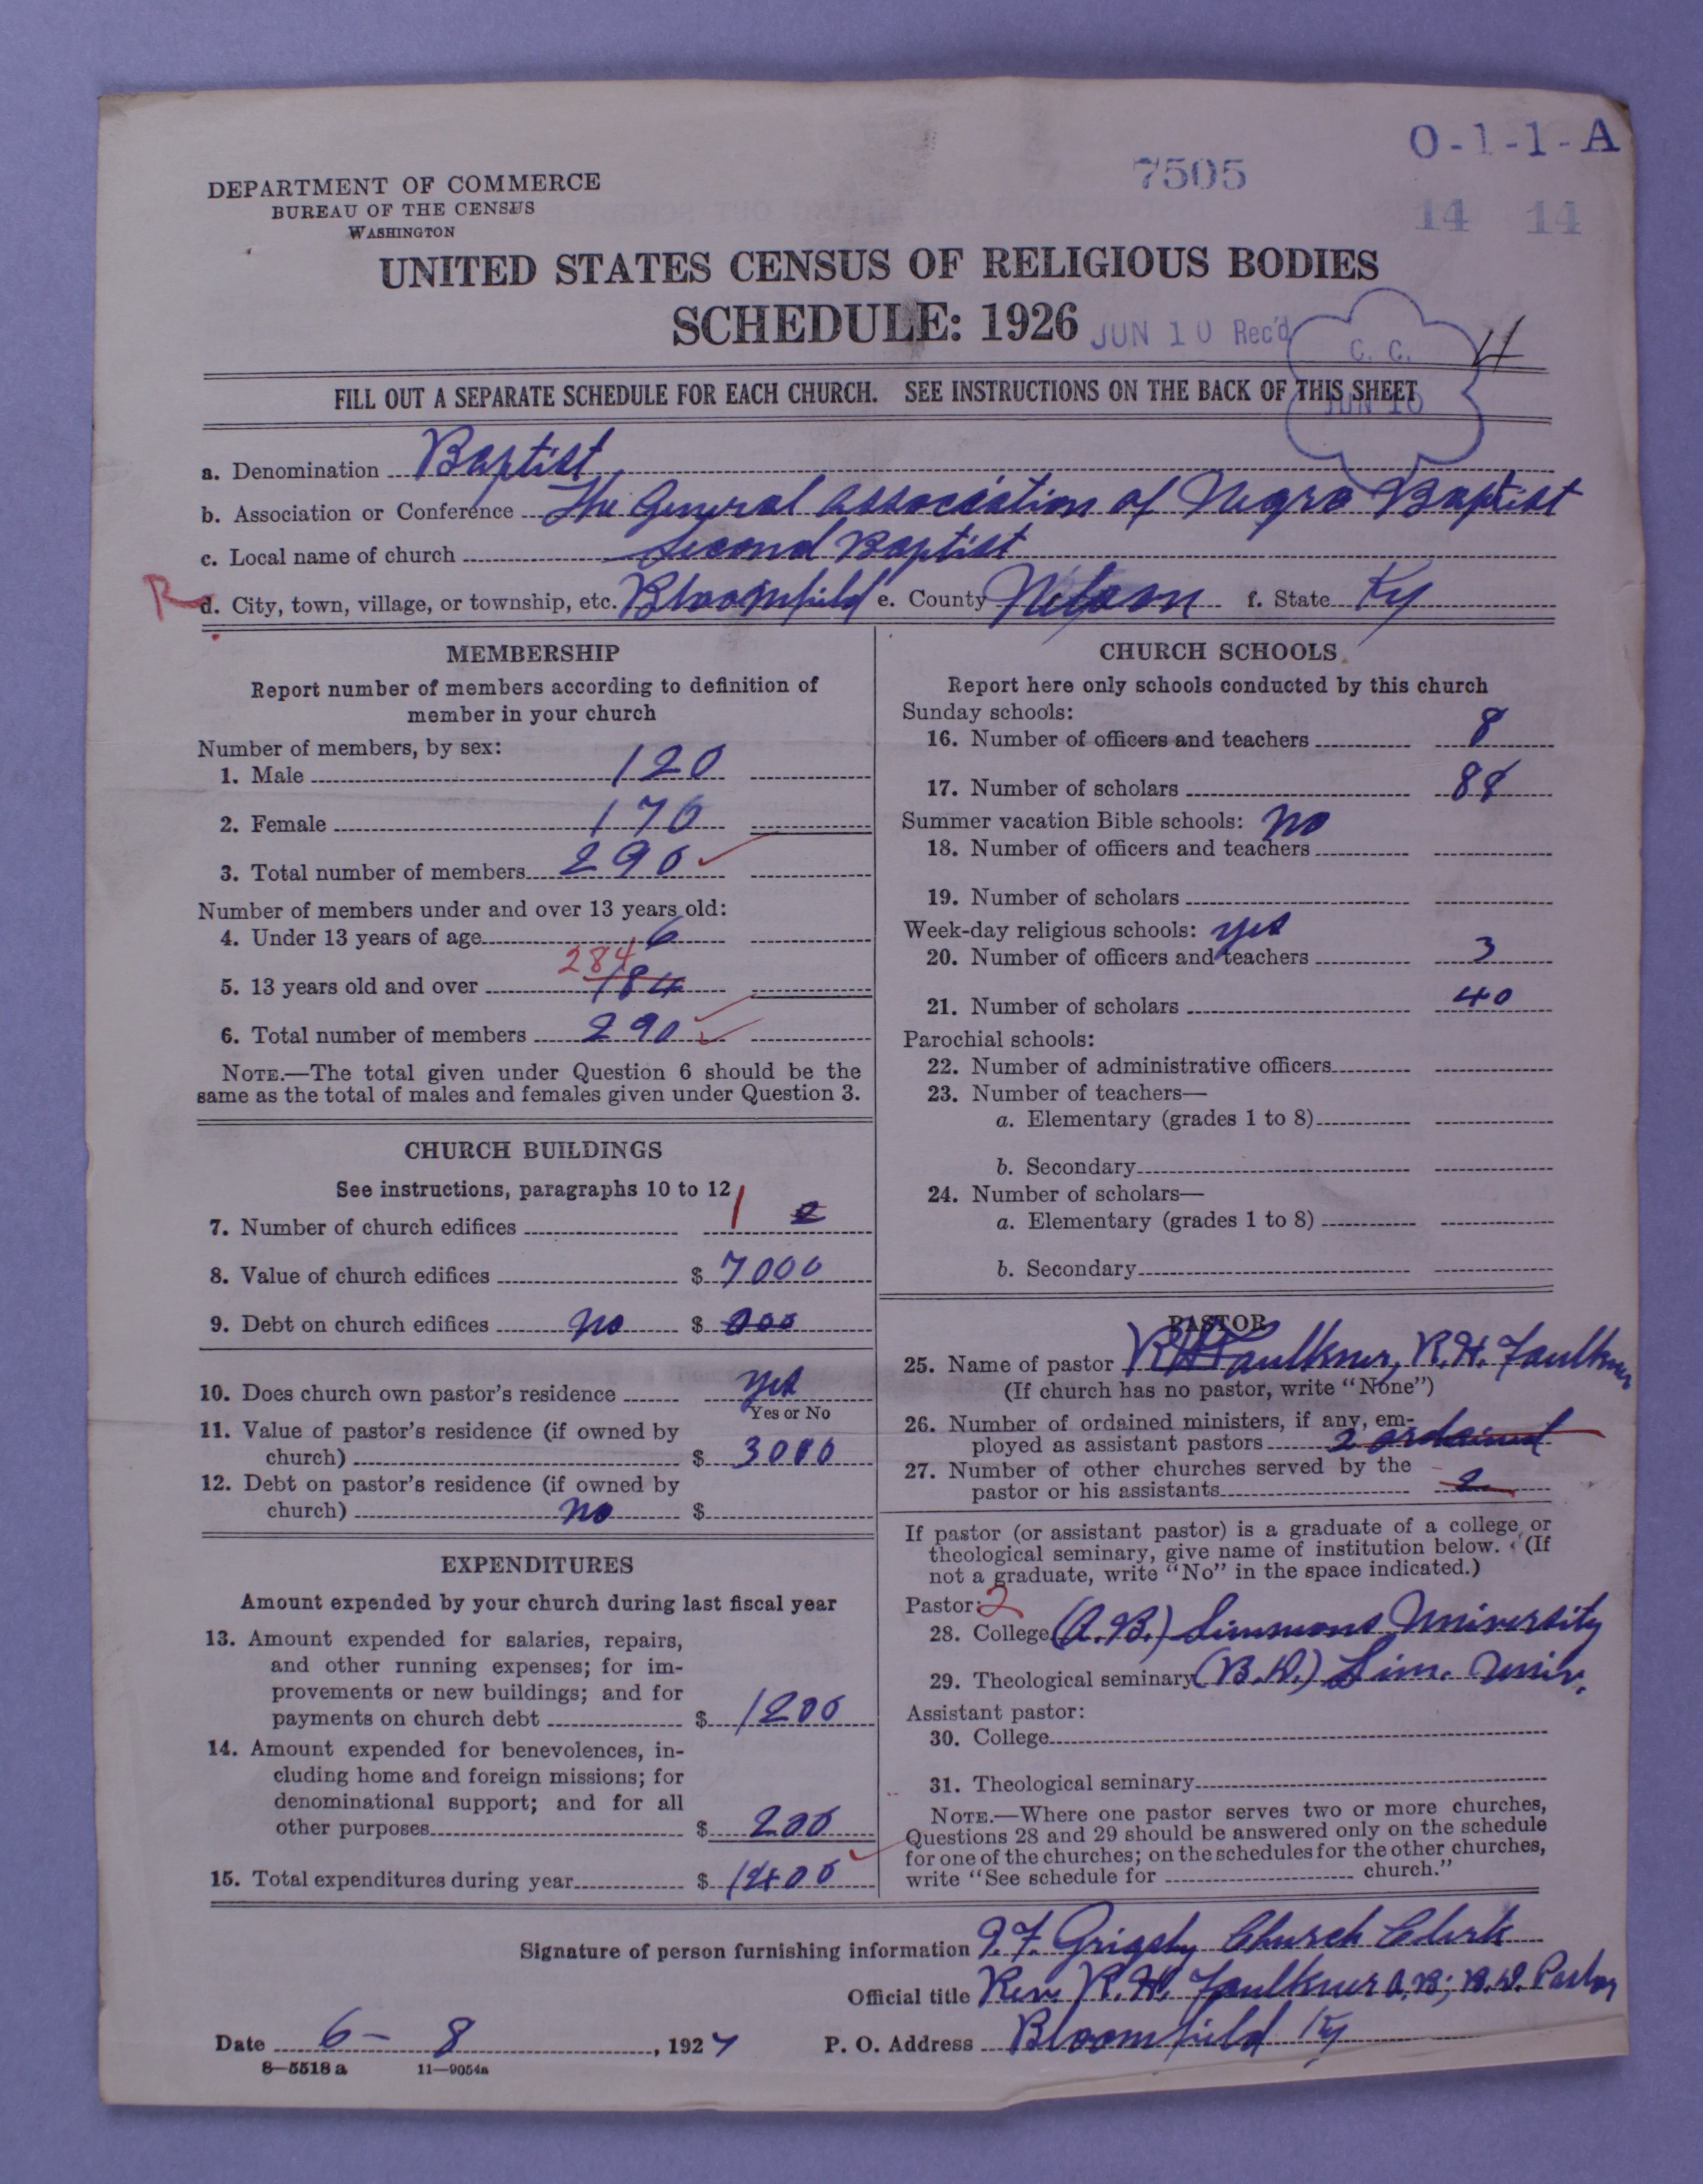 O-1-1-A
7505
14 14
DEPARTMENT OF COMMERCE
BUREAU OF THE CENSUS
WASHINGTON
UNITED STATES CENSUS OF RELIGIOUS BODIES
SCHEDULE: 1926
JUN 10 Rec'd
C. C.
JUN 10
FILL OUT A SEPARATE SCHEDULE FOR EACH CHURCH. SEE INSTRUCTIONS ON THE BACK OF THIS SHEET
a. Denomination Baptist
b. Association or Conference The General Association of Negro Baptist
c. Local name of church Second Baptist
R
d. City, town, village, or township, etc. Bloomfield e. County Nelson f. State Ky
MEMBERSHIP
Report number of members according to definition of
member in your church
Number of members, by sex:
1. Male 120
2. Female 170
3. Total number of members 290
Number of members under and over 13 years old:
4. Under 13 years of age 6
284
5. 13 years old and over 184
6. Total number of members 290
NOTE.—The total given under Question 6 should be the
same as the total of males and females given under Question 3.
CHURCH BUILDINGS
See instructions, paragraphs 10 to 12
7. Number of church edifices 1 2
8. Value of church edifices $ 7000
9. Debt on church edifices no $ 000
10. Does church own pastor's residence yes
Yes or No
11. Value of pastor's residence (if owned by
church) $ 3000
12. Debt on pastor's residence (if owned by
church) no $
EXPENDITURES
Amount expended by your church during last fiscal year
13. Amount expended for salaries, repairs,
and other running expenses; for im-
provements or new buildings; and for
payments on church debt $ 1200
14. Amount expended for benevolences, in-
cluding home and foreign missions; for
denominational support; and for all
other purposes $ 200
15. Total expenditures during year $ 1400
CHURCH SCHOOLS
Report here only schools conducted by this church
Sunday schools:
16. Number of officers and teachers 8
17. Number of scholars
Summer vacation Bible schools: no
18. Number of officers and teachers
19. Number of scholars
Week-day religious schools: yes
20. Number of officers and teachers 3
21. Number of scholars 40
Parochial schools:
22. Number of administrative officers
23. Number of teachers—
a. Elementary (grades 1 to 8)
b. Secondary
24. Number of scholars—
a. Elementary (grades 1 to 8)
b. Secondary
PASTOR
25. Name of pastor RH Faulkner, R.H. Faulkner
(If church has no pastor, write "None")
26. Number of ordained ministers, if any, em-
ployed as assistant pastors 2 ordained
27. Number of other churches served by the
pastor or his assistants 2
If pastor (or assistant pastor) is a graduate of a college or
theological seminary, give name of institution below. (If
not a graduate, write "No" in the space indicated.)
Pastor: 2
28. College (A.B.) Simmons University
29. Theological seminary (B.D.) Sim. Univ.
Assistant pastor:
30. College
31. Theological seminary
NOTE.—Where one pastor serves two or more churches,
Questions 28 and 29 should be answered only on the schedule
for one of the churches; on the schedules for the other churches,
write "See schedule for church."
Signature of person furnishing information Grigsby Church Clerk
Official title Rev. R.H. Faulkner A.B; B.D. Pastor
Date 6-8, 1927 P. O. Address Bloomfield Ky
8—5518 a 11—9054a